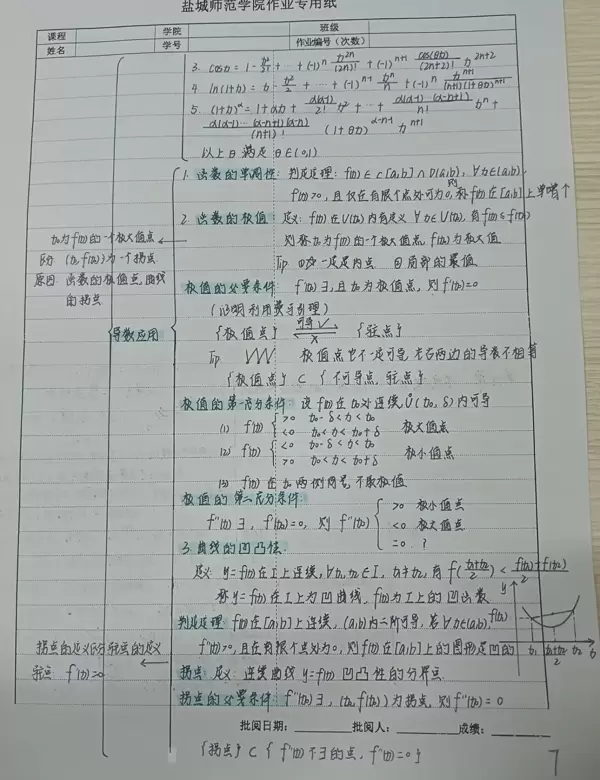 盐城师范学院作业专用纸
课程 学院 班级
姓名 学号 作业编号（次数）
3. cosx = 1 - x²/2! + ... + (-1)ⁿ x²ⁿ/(2n)! + (-1)ⁿ⁺¹ cos(θx)/(2n+2)! x²ⁿ⁺²
4. ln(1+x) = x - x²/2 + ... + (-1)ⁿ⁻¹ xⁿ/n + (-1)ⁿ xⁿ⁺¹/(n+1)(1+θx)ⁿ⁺¹
5. (1+x)^α = 1+αx + α(α-1)/2! x² + ... + α(α-1)...(α-n+1)/n! xⁿ +
α(α-1)...(α-n+1)(α-n)/(n+1)! (1+θx)^(α-n-1) xⁿ⁺¹
以上θ满足θ∈(0,1)
导数应用
1. 函数的单调性: 判定定理: f(x)∈C[a,b]∩D(a,b), ∀x∈(a,b),
f'(x)>0, 且仅在有限个点处可为0, 则称f(x)在[a,b]上单增↑
2. 函数的极值: 定义: f(x)在U(x₀)内有定义 ∀x∈U(x₀), 有f(x)≤f(x₀)
则称x₀为f(x)的一个极大值点, f(x₀)为极大值
x₀为f(x)的一个极大值点
区分 (x₀, f(x₀))为一个拐点
原因: 函数的极值点, 曲线
的拐点
Tip ①一定是内点 ②局部的最值
极值的必要条件: f'(x₀)∃, 且x₀为极值点, 则f'(x₀)=0
(证明利用费马引理)
{极值点} 可导√ ⇌ × {驻点}
Tip 极值点它不一定可导, 左右两边的导数不相等
{极值点} ⊂ {不可导点, 驻点}
极值的第一充分条件: 设f(x)在x₀处连续, Ů(x₀, δ)内可导
(1) f'(x) { >0 x₀-δ<x<x₀
<0 x₀<x<x₀+δ 极大值点
(2) f'(x) { <0 x₀-δ<x<x₀
>0 x₀<x<x₀+δ 极小值点
(3) f'(x)在x₀两侧同号, 不取极值
极值的第二充分条件:
f''(x₀)∃, f'(x₀)=0, 则 f''(x₀) { >0 极小值点
<0 极大值点
=0 ?
3. 曲线的凹凸性
定义: y=f(x)在I上连续, ∀x₁,x₂∈I, x₁≠x₂, 有 f((x₁+x₂)/2) < (f(x₁)+f(x₂))/2
称y=f(x)在I上为凹曲线, f(x)为I上的凹函数
y f(x) x₁ (x₁+x₂)/2 x₂ x
判定定理: f(x)在[a,b]上连续, (a,b)内二阶可导, 若∀x∈(a,b),
f''(x)>0, 且在有限个点处为0, 则f(x)在[a,b]上的图形是凹的
拐点的定义区分驻点的定义
驻点 f'(x₀)=0
拐点: 定义: 连续曲线y=f(x)凹凸性的分界点
拐点的必要条件: f''(x₀)∃, (x₀, f(x₀))为拐点, 则f''(x₀)=0
批阅日期: 批阅人: 成绩:
{拐点} ⊂ {f''(x)不∃的点, f''(x)=0}
7